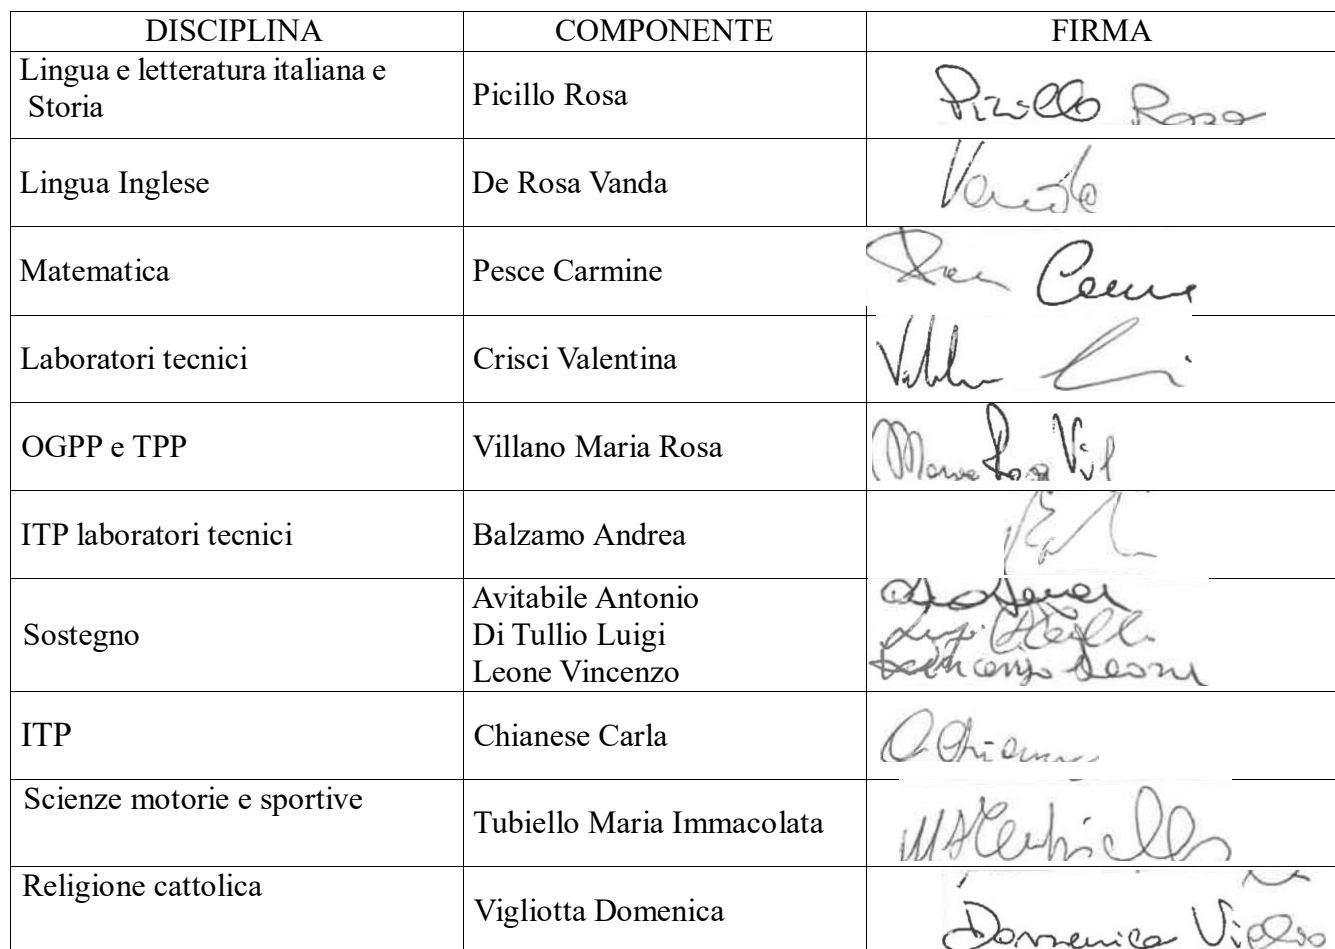 DISCIPLINA COMPONENTE FIRMA
Lingua e letteratura italiana e
Storia
Picillo Rosa
Picillo Rosa
Lingua Inglese De Rosa Vanda
Matematica Pesce Carmine
Laboratori tecnici Crisci Valentina
OGPP e TPP Villano Maria Rosa Maria Rosa Vil
ITP laboratori tecnici Balzamo Andrea
Sostegno
Avitabile Antonio
Di Tullio Luigi
Leone Vincenzo
Vincenzo Leone
ITP Chianese Carla
Scienze motorie e sportive
Tubiello Maria Immacolata
Religione cattolica
Vigliotta Domenica
Domenica